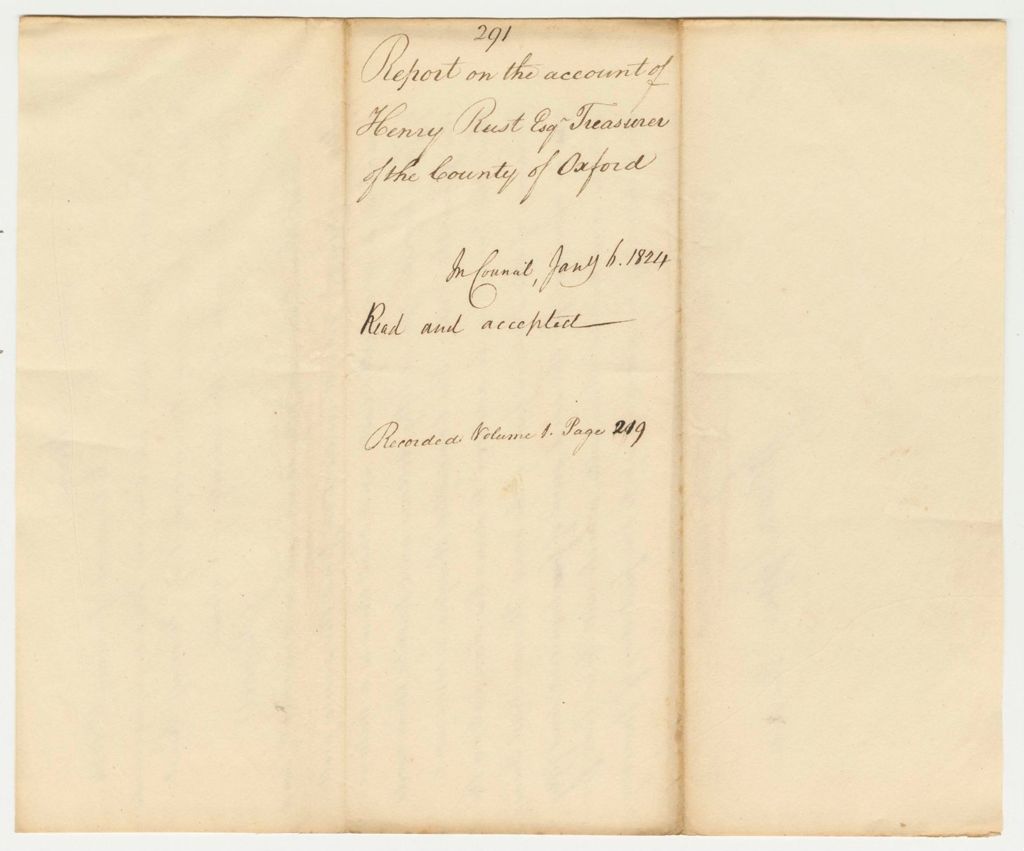 291
Report on the account of
Henry Rust Esqr Treasurer
of the County of Oxford
In Council, Jany 6. 1824
Read and accepted
Recorded Volume 1. Page 219